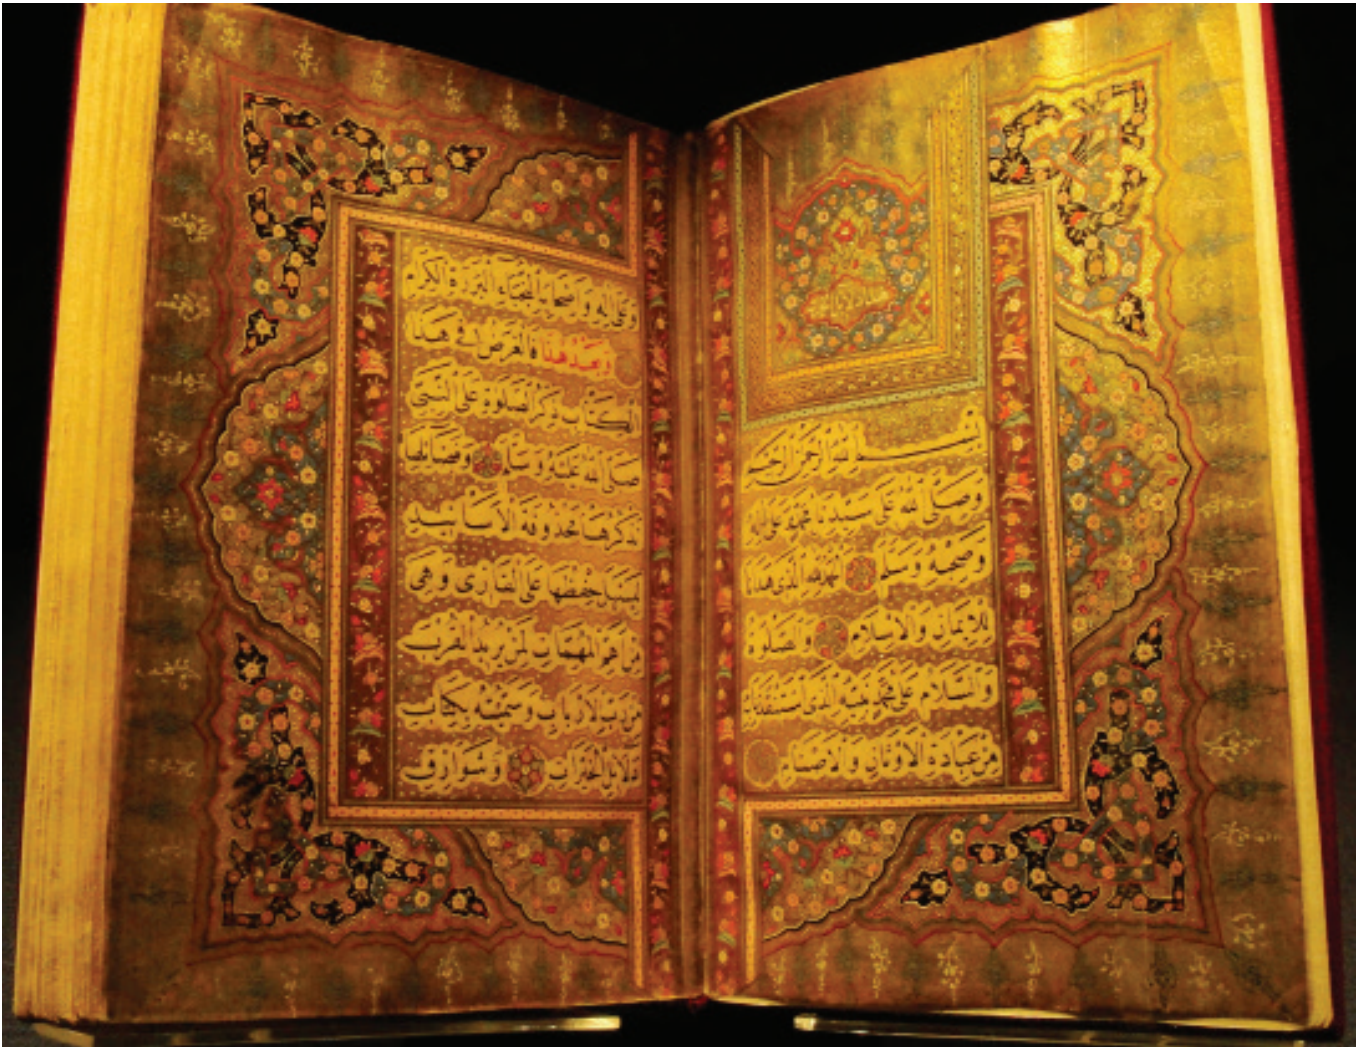 بسم الله الرحمن الرحيم
وصلى الله على سيدنا محمد وعلى اله
وصحبه وسلم الحمد لله الذى هدانا
للايمان والاسلام والصلوة
والسلام على محمد نبيه الذى استنقذنا به
من عبادة الاوثان والاصنام
وعلى اله واصحابه النجباء البررة الكرام
وبعد هذا فالغرض فى هذا
الكتاب ذكر الصلوة على النبى
صلى الله عليه وسلم وفضائلها
نذكرها محذوفة الاسانيد
ليسهل حفظها على القارى وهى
من اهم المهمات لمن يريد القرب
من رب الارباب وسميته بكتاب
دلائل الخيرات وشوارق